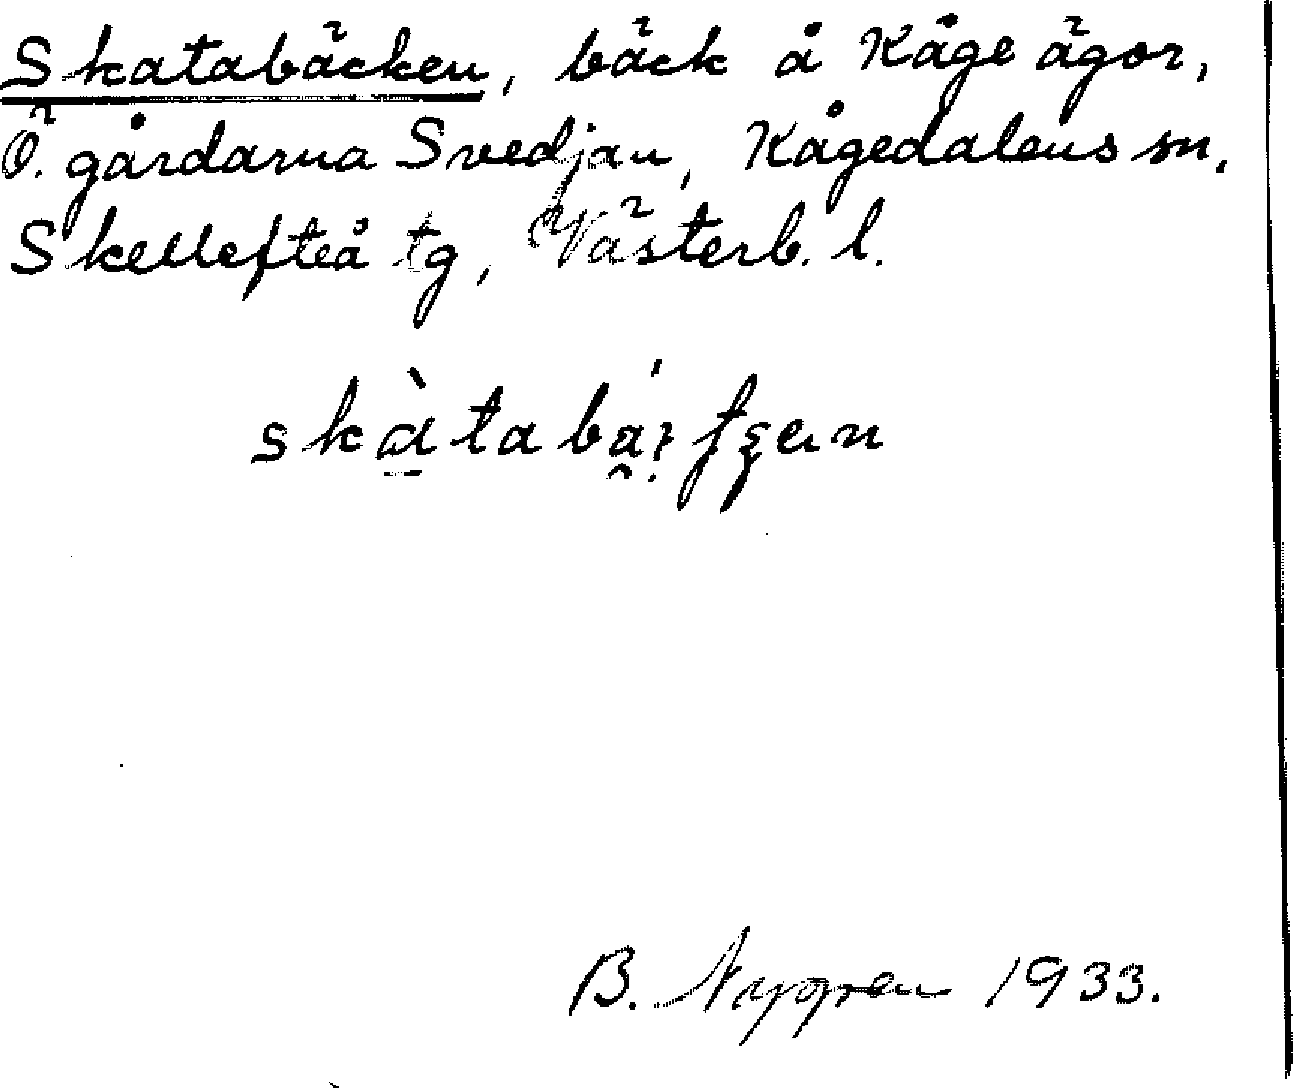 Skatabäcken, bäck å Kåge ägor,
Ö. gårdarna Svedjan, Kågedalens sn.
Skellefteå tg, Västerb. l.
B. Nygren 1933.